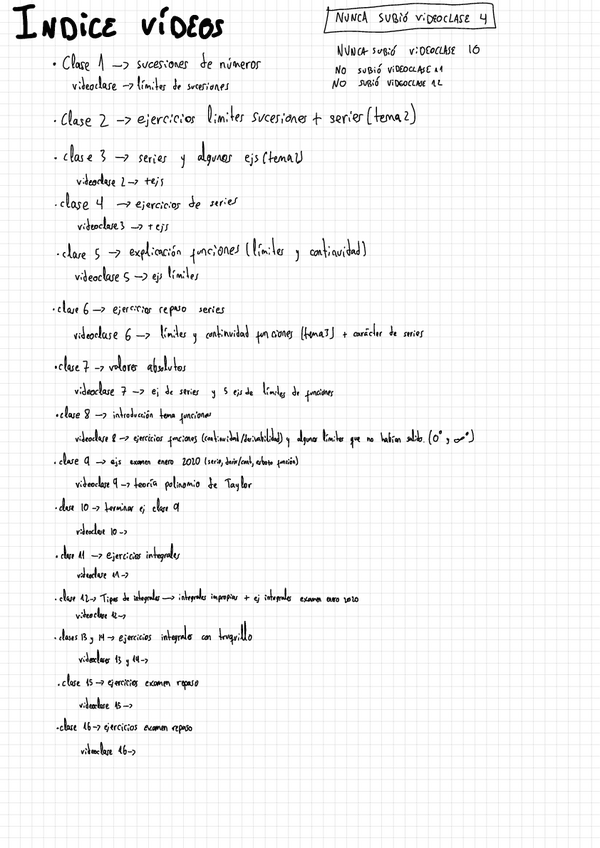 INDICE VÍDEOS
NUNCA SUBIÓ VIDEOCLASE 4
NUNCA SUBIÓ VIDEOCLASE 10
NO SUBIÓ VIDEOCLASE 11
NO SUBIÓ VIDEOCLASE 12
· Clase 1 → sucesiones de números
videoclase → límites de sucesiones
· Clase 2 → ejercicios limites sucesiones + series (tema 2)
· clase 3 → series y algunos ejs (tema 2)
videoclase 2 → +ejs
· clase 4 → ejercicios de series
videoclase 3 → + ejs
· clase 5 → explicación funciones (límites y continuidad)
videoclase 5 → ejs límites
· clase 6 → ejercicios repaso series
videoclase 6 → límites y continuidad funciones (tema 3) + carácter de series
· clase 7 → valores absolutos
videoclase 7 → ej de series y 5 ejs de límites de funciones
· clase 8 → introducción tema funciones
videoclase 8 → ejercicios funciones (continuidad/derivabilidad) y algunos límites que no habían salido. (0⁰, ∞⁰)
· clase 9 → ejs examen enero 2020 (serie, deriv/cont, esbozo función)
videoclase 9 → teoría polinomio de Taylor
· clase 10 → terminar ej clase 9
videoclase 10 →
· clase 11 → ejercicios integrales
videoclase 11 →
· clase 12 → Tipos de integrales → integrales impropias + ej integrales examen enero 2020
videoclase 12 →
· clases 13 y 14 → ejercicios integrales con truquillo
videoclases 13 y 14 →
· clase 15 → ejercicios examen repaso
videoclase 15 →
· clase 16 → ejercicios examen repaso
videoclase 16 →